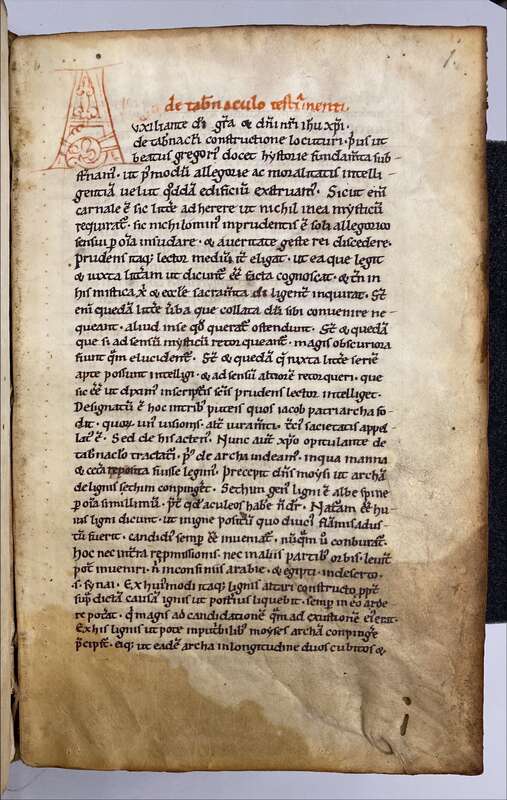 1.
de tab̄naculo testim̄enti.
Auxiliante dī gr̄a & dn̄i nr̄i ihu xp̄i.
de tab̄nac̄li constructione locuturi. pius ut
beatus gregori⁹ docet hystorie fundam̄ta sub-
st̄nam̄. ut p modū allegorie ac moralitatis intelli-
gentiā uelut qdd̄ā edificiū exstruam̄. Sicut eni
carnale ē sic litt̄e adherere ut nichil in ea mysticū
requirat̄. sic nichilomin⁹ inprudentis ē soli allegorico
sensui p oīa insudare. & a ueritate geste rei discedere.
Prudens itaq; lector mediū it̄ eligat. ut ea que legit
& iuxta litt̄am ut dicunt̄ ēē facta cognoscat. & tn̄ in
his mistica x̄ & eccl̄e sacram̄ta diligent̄ inquirat. St̄
eni quedā litt̄e ūba que collata dūi sibi conuenire ne-
queant. aliud in se qd̄ querat̄ ostendunt. St̄ & quedā
que si ad sensū mysticū retorqueant̄. magis obscuriora
fiunt qm̄ elucident̄. St̄ & quedā q iuxta litt̄e seriē
apte possunt intelligi. & ad sensū altiorē retorqueri. que
sic ēē ut dixim⁹ inscriptis sc̄is prudens lector intelliget.
Designatū ē hoc in trib⁹ puteis quos iacob patriarcha fo-
dit. quor̄ un⁹ uisionis. alt̄ iuram̄ti. t̄ci⁹ societatis appel-
lat⁹ ē. Sed de his acten⁹. Nunc aut̄ xp̄o opitulante de
tab̄naclo tractat̄i. p⁹ de archa uideam⁹. in qua manna
& cet̄a reposita fuisse legim⁹. Precepit dn̄s moysi ut archā
de lignis sethim conpinḡet. Sethim gen⁹ ligni ē albe spine
p oīa simillimū. p̄t qd̄ aculeos habe n̄ dr̄. Nat̄am ēē hu-
ius ligni dicunt. ut in igne positū quo diuci⁹ flam̄is adus-
tū fuerit. candidi⁹ semp ēē inueniat̄. nūqm̄ ū conburat̄.
hoc nec int̄ra repmissionis. nec in aliis partib⁹ orbis. leuit̄
pot̄ inueniri. n̄ in confiniis arabie. & egipti in deserto.
s. synai. Ex hui⁹modi itaq; lignis altari constructo ppt̄
sup̄ dictā causā ignis ut post̄ius liquebit. semp in eo arde
re pot̄at. q magis ad candidationē qm̄ ad exustionē ei⁹ erit.
Ex his lignis ut pote inputribilib⁹ moyses archā conpinge
p̄cipit̄. eiq; ut eadē archa in longitudine duos cubitos &